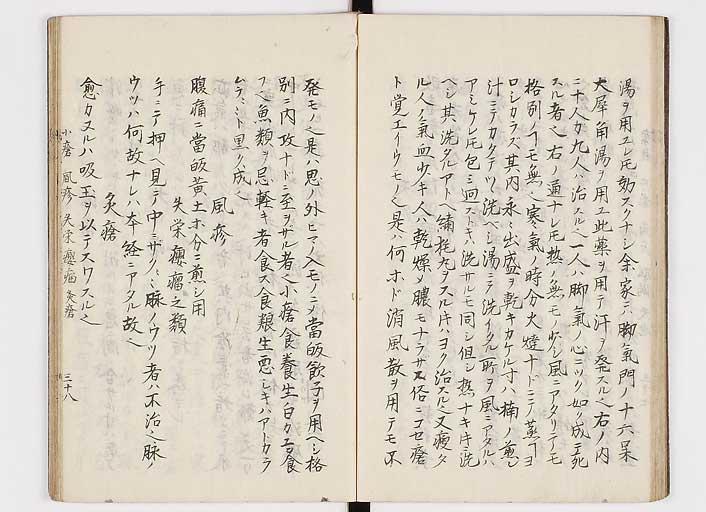 湯ヲ用ユレ𪜈効スクナシ余家ニハ脚氣門ノ十六呆
大犀角湯ヲ用ユ此薬ヲ用テ汗ヲ発スルヘ右ノ内
二十人カ九人ハ治スルヘ一人ハ脚氣ノ心ニツク如ク成テ死
スル者ヘ右ノ通ナレ𪜈熱ノ無モノ少シ風ニアタリテノモ
格別ノコモ無ヘ寒氣ノ時分火燵ナトニテ蒸コヨ
ロシカラズ其内永ク出盛ヲ乾キカケル寸ハ楠ノ煎シ
汁ニテカクテツヽ洗ヘシ湯ニテ洗イタル一所ヲ風ニアタルハ
アミケレ𪜈包ミ洗サルモ同シ但シ熱ナキ片洗
ヘシ其洗タルアトヘ補托丸ヲスル片ハヨク治スルヘ又痩タ
ル人ノ氣血少キ人ハ乾燥ヲ膿モナラサヌ俗ニコセ瘡
ト覚エイウモノヘ是ハ何ホド消風散ヲ用テモ不
発モノヘ是ハ思ノ外ヒマノ入モノニテ當皈飲子ヲ用ヘシ格
別ニ内攻ナドニ至ヲザル者ヘ小瘡食養生白カユヲ食
スヘ魚類ヲ忌軽キ者食ス食頬生悪シキハアトカラ
ムラミト黒ク成ヘ
風疹
腹痛ニ當皈黄土ホ分ニ煎シ用
失栄癭瘤之類
手ニテ押ヘ見テ中ニサノミ脉ノウツ者ハ不治之脉ノ
ウツハ何故ナレハ本経ニアタル故ヘ
灸瘡
愈カヌルハ吸玉ヲ以テスワスルヘ
小瘡 風疹 失栄癭瘤 灸瘡
三十八